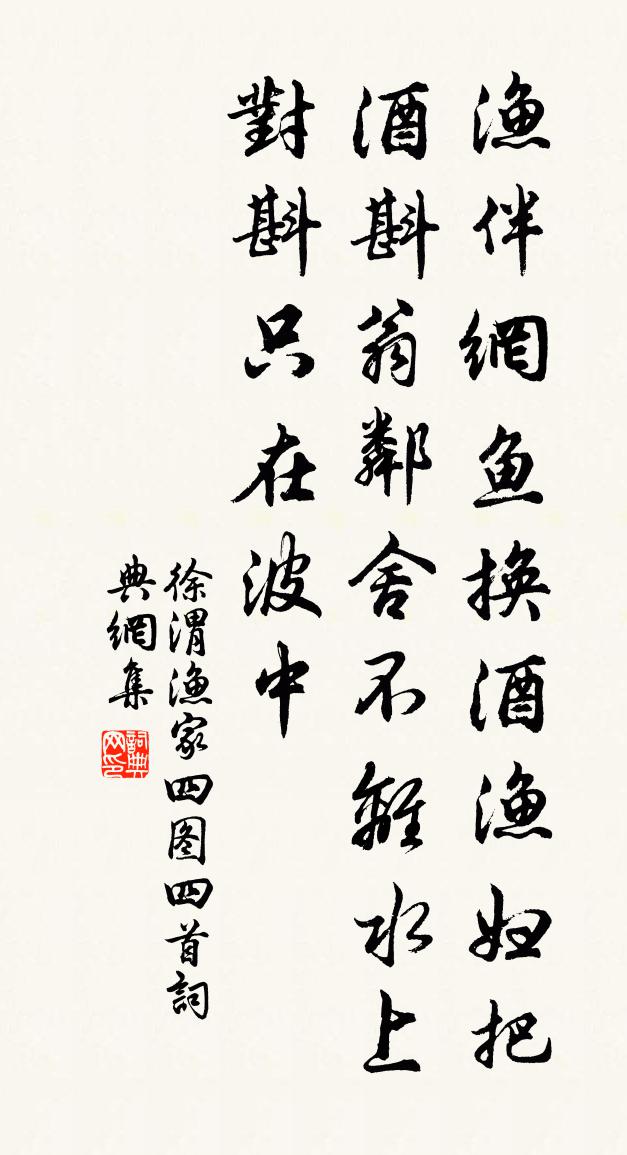 漁伴網魚換酒漁妇把
酒斟翁鄰舍不離水上
對斟只在波中
徐渭漁家四图四首詞
典網集
詞典
网印